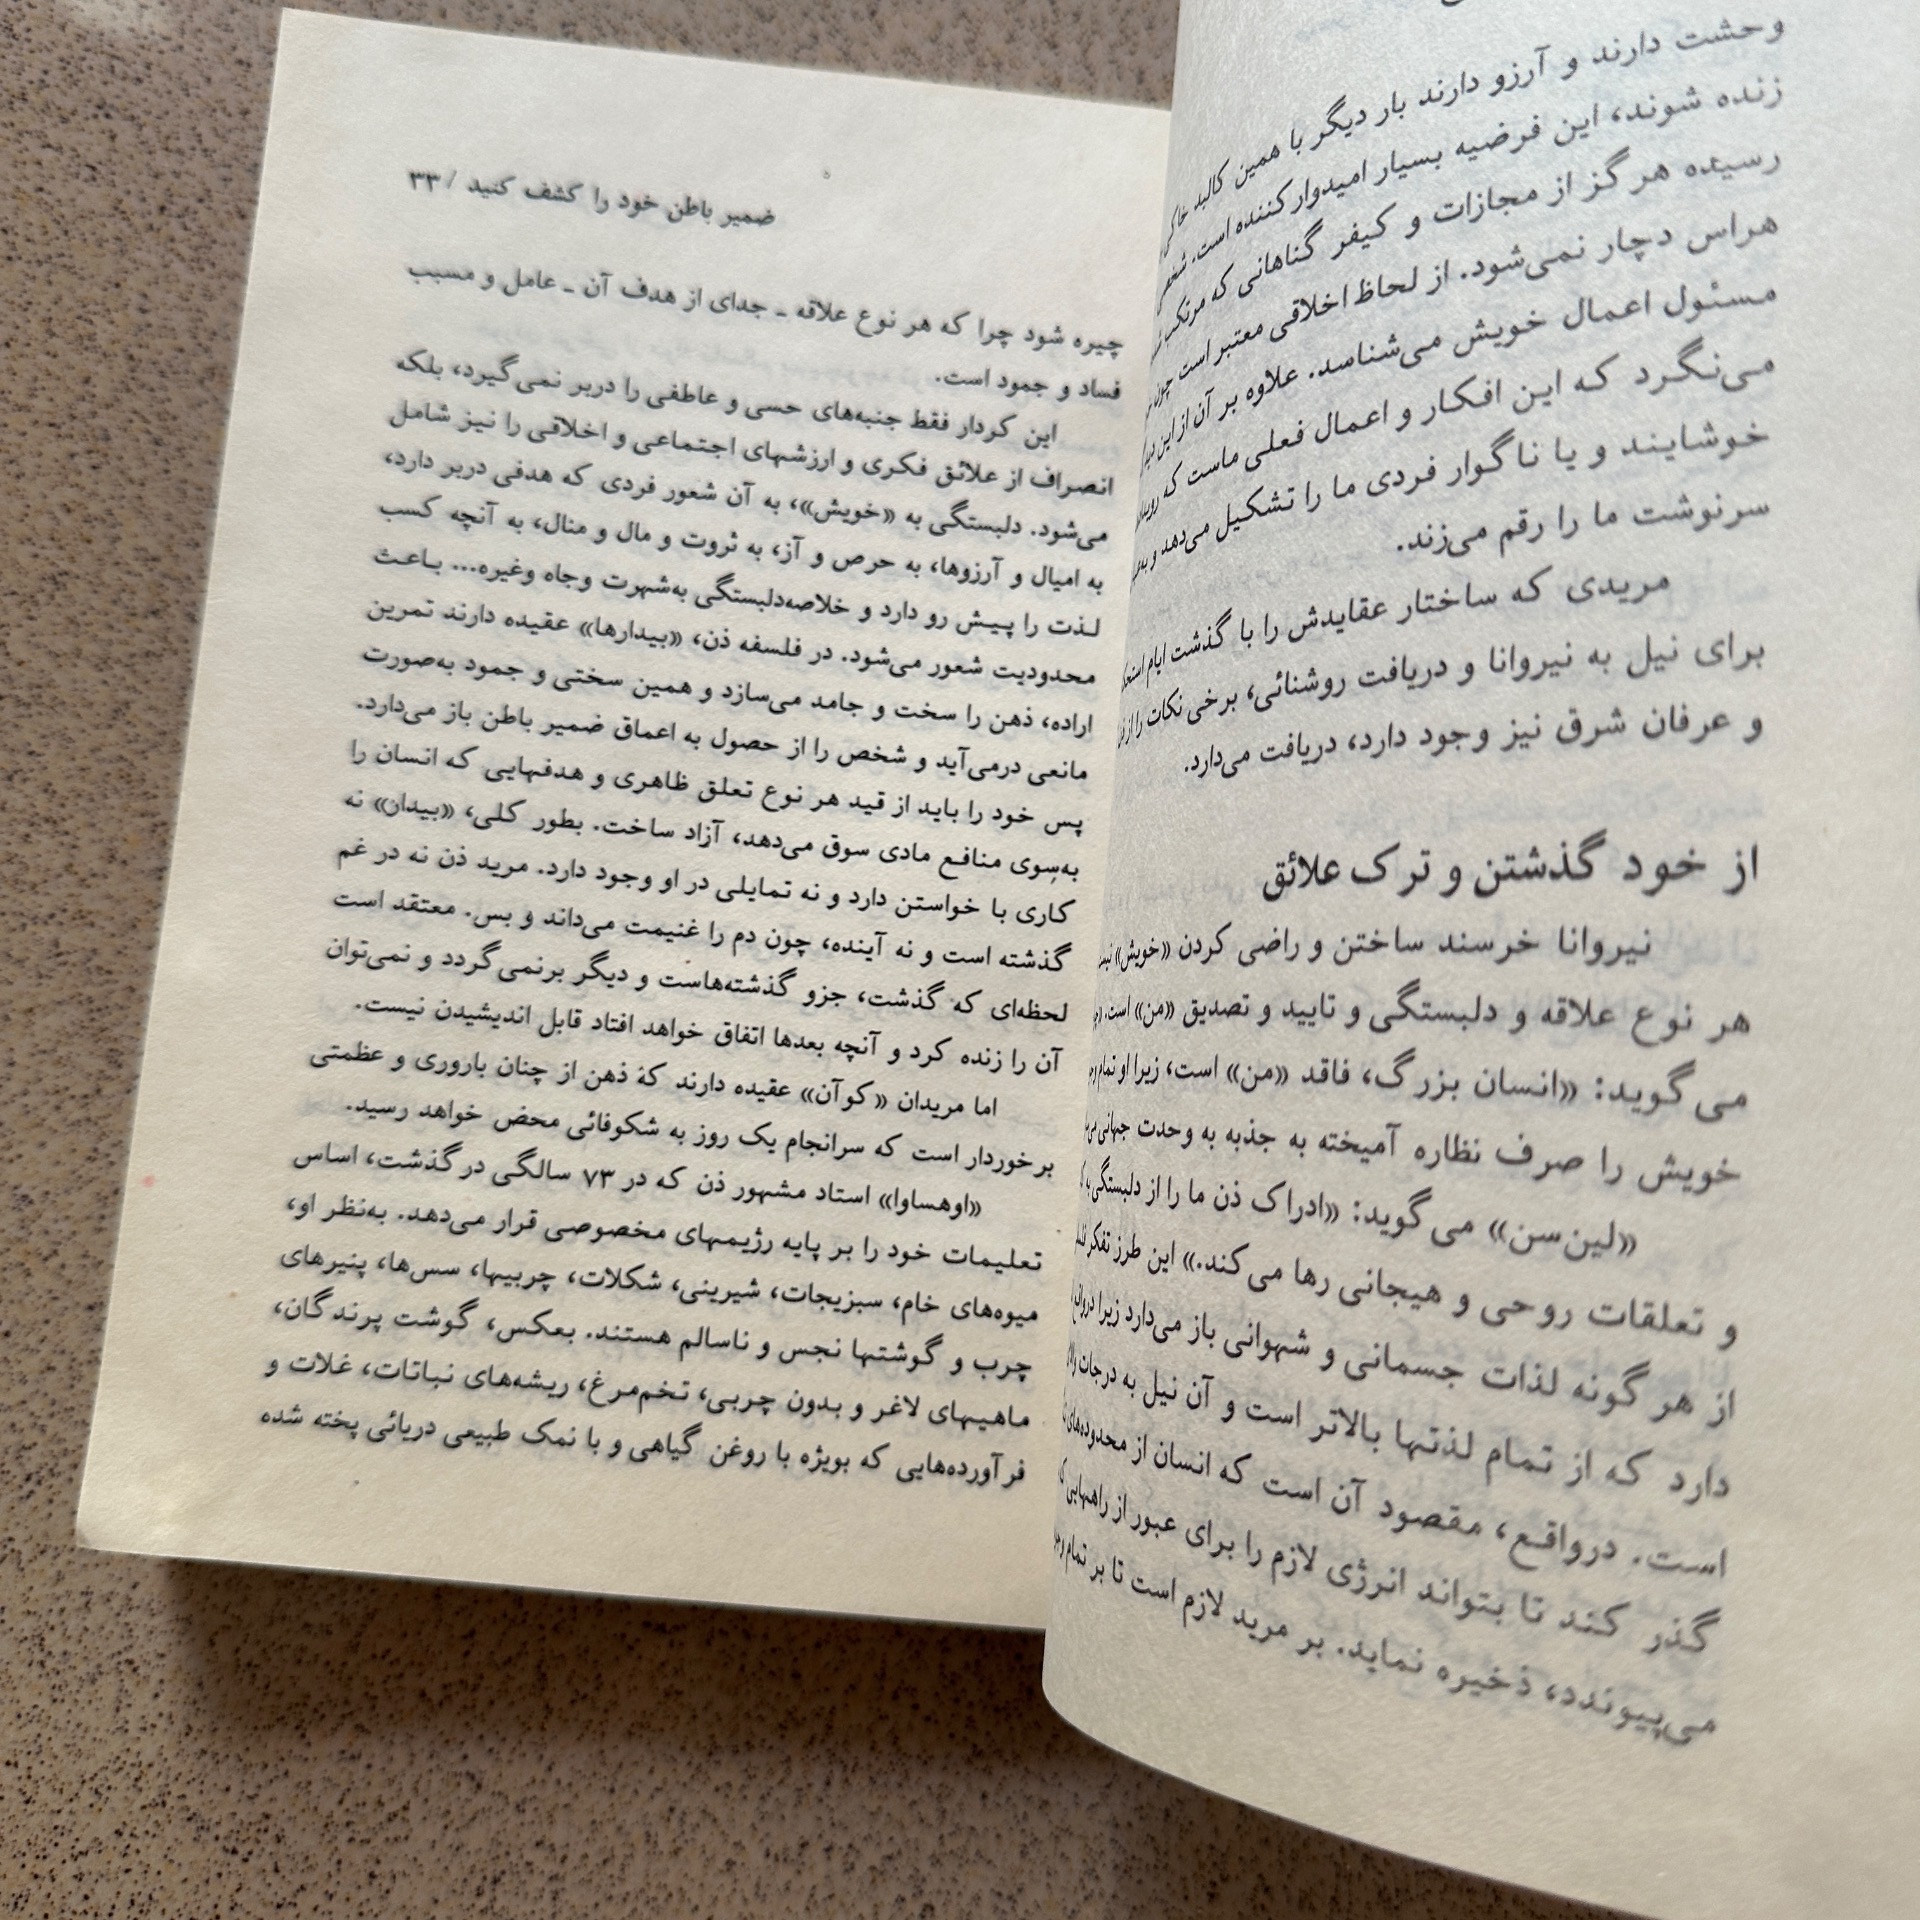 وحشت دارند و آرزو دارند بار دیگر با همین کالبد خاکی
زنده شوند، این فرضیه بسیار امیدوارکننده است. شخصی
رسیده هرگز از مجازات و کیفر گناهانی که مرتکب
هراس دچار نمی‌شود. از لحاظ اخلاقی معتبر است چون
مسئول اعمال خویش می‌شناسد. علاوه بر آن از این
می‌نگرد که این افکار و اعمال فعلی ماست که
خوشایند و یا ناگوار فردی ما را تشکیل می‌دهد و
سرنوشت ما را رقم می‌زند.
مریدی که ساختار عقایدش را با گذشت ایام
برای نیل به نیروانا و دریافت روشنائی، برخی نکات را از
و عرفان شرق نیز وجود دارد، دریافت می‌دارد.
از خود گذشتن و ترک علائق
نیروانا خرسند ساختن و راضی کردن «خویش»
هر نوع علاقه و دلبستگی و تایید و تصدیق «من» است.
می‌گوید: «انسان بزرگ، فاقد «من» است، زیرا او تمام
خویش را صرف نظاره آمیخته به جذبه به وحدت جهانی
«لین‌سن» می‌گوید: «ادراک ذن ما را از دلبستگی به
و تعلقات روحی و هیجانی رها می‌کند.» این طرز تفکر
از هر گونه لذات جسمانی و شهوانی باز می‌دارد زیرا
دارد که از تمام لذتها بالاتر است و آن نیل به درجات
است. درواقع، مقصود آن است که انسان از محدوده‌های
گذر کند تا بتواند انرژی لازم را برای عبور از راههایی
می‌پیوندد، ذخیره نماید. بر مرید لازم است تا بر تمام
ضمیر باطن خود را کشف کنید / ۳۳
چیره شود چرا که هر نوع علاقه ـ جدای از هدف آن ـ عامل و مسبب
فساد و جمود است.
این کردار فقط جنبه‌های حسی و عاطفی را دربر نمی‌گیرد، بلکه
انصراف از علائق فکری و ارزشهای اجتماعی و اخلاقی را نیز شامل
می‌شود. دلبستگی به «خویش»، به آن شعور فردی که هدفی دربر دارد،
به امیال و آرزوها، به حرص و آز، به ثروت و مال و منال، به آنچه کسب
لذت را پیش رو دارد و خلاصه‌دلبستگی به‌شهرت وجاه وغیره... باعث
محدودیت شعور می‌شود. در فلسفه ذن، «بیدارها» عقیده دارند تمرین
اراده، ذهن را سخت و جامد می‌سازد و همین سختی و جمود به‌صورت
مانعی درمی‌آید و شخص را از حصول به اعماق ضمیر باطن باز می‌دارد.
پس خود را باید از قید هر نوع تعلق ظاهری و هدفهایی که انسان را
به‌سوی منافع مادی سوق می‌دهد، آزاد ساخت. بطور کلی، «بیدان» نه
کاری با خواستن دارد و نه تمایلی در او وجود دارد. مرید ذن نه در غم
گذشته است و نه آینده، چون دم را غنیمت می‌داند و بس. معتقد است
لحظه‌ای که گذشت، جزو گذشته‌هاست و دیگر برنمی‌گردد و نمی‌توان
آن را زنده کرد و آنچه بعدها اتفاق خواهد افتاد قابل اندیشیدن نیست.
اما مریدان «کوآن» عقیده دارند که ذهن از چنان باروری و عظمتی
برخوردار است که سرانجام یک روز به شکوفائی محض خواهد رسید.
«اوهساوا» استاد مشهور ذن که در ۷۳ سالگی درگذشت، اساس
تعلیمات خود را بر پایه رژیمهای مخصوصی قرار می‌دهد. به‌نظر او،
میوه‌های خام، سبزیجات، شیرینی، شکلات، چربیها، سس‌ها، پنیرهای
چرب و گوشتها نجس و ناسالم هستند. بعکس، گوشت پرندگان،
ماهیهای لاغر و بدون چربی، تخم‌مرغ، ریشه‌های نباتات، غلات و
فرآورده‌هایی که بویژه با روغن گیاهی و با نمک طبیعی دریائی پخته شده